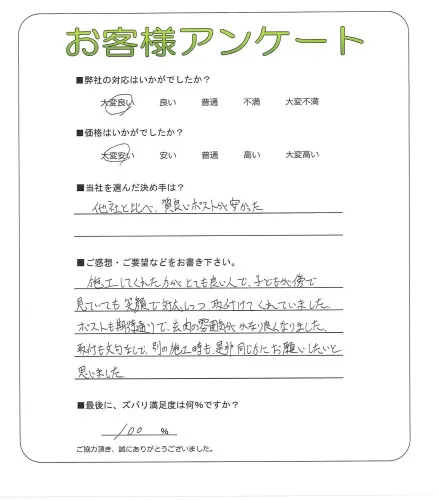 お客様アンケート
■弊社の対応はいかがでしたか?
大変良い 良い 普通 不満 大変不満
■価格はいかがでしたか?
大変安い 安い 普通 高い 大変高い
■当社を選んだ決め手は?
他社と比べ、質良いポストが安かった
■ご感想・ご要望などをお書き下さい。
施工してくれた方がとても良い人で、子どもが傍で
見ていても笑顔で対応しつつ取付けてくれていました。
ポストも期待通りで、玄内の雰囲気がかなり良くなりました。
取付も文句なしで、別の施工時も、是非同じ方にお願いしたいと
思いました。
■最後に、ズバリ満足度は何%ですか?
100 %
ご協力頂き、誠にありがとうございました。